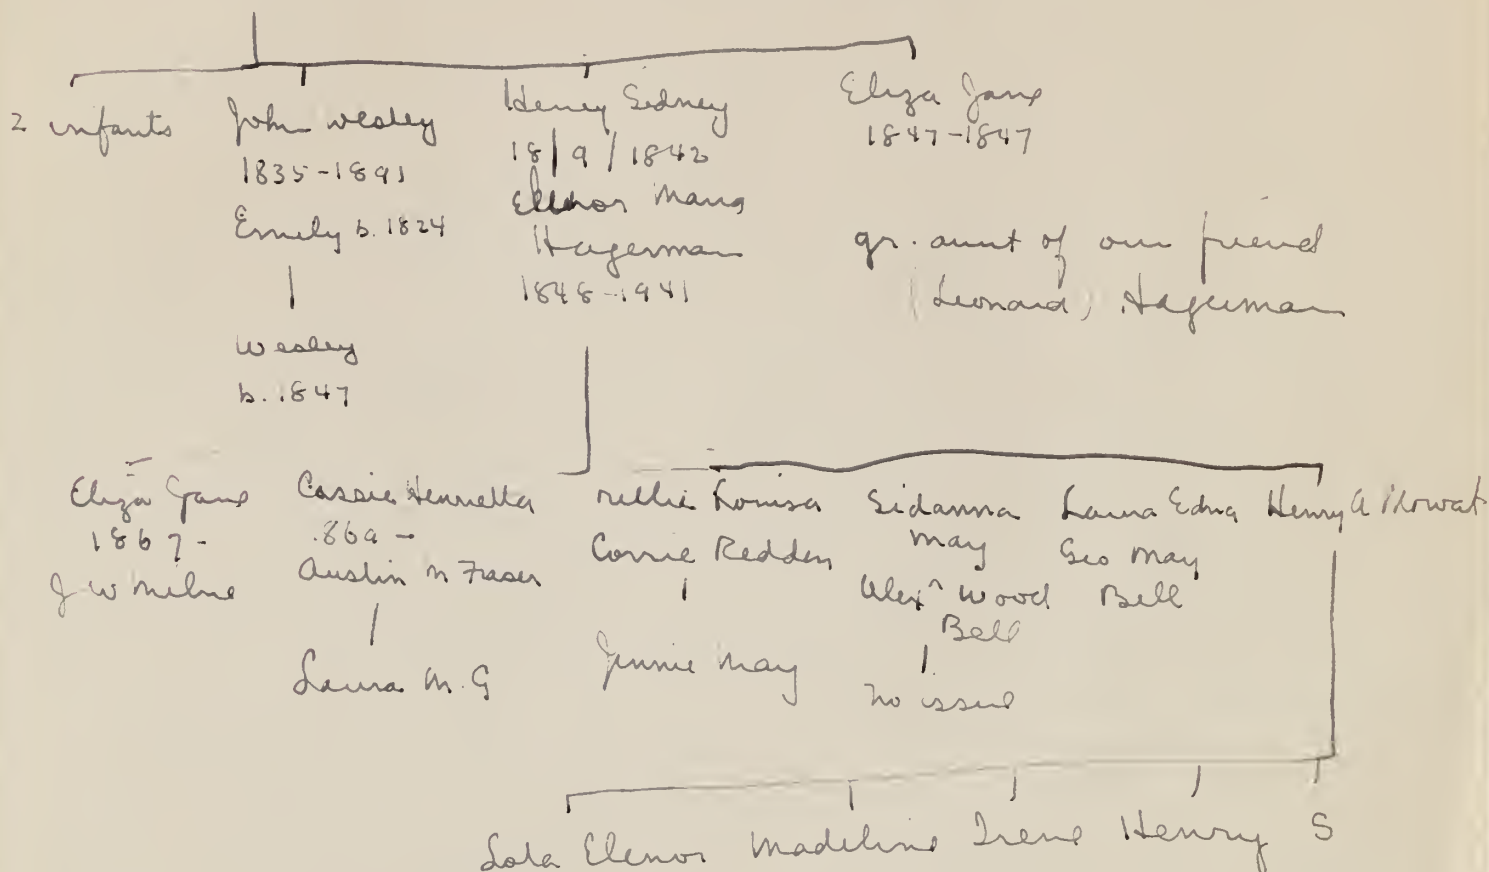 2 infants
John Wesley
1835-1891
Emily b. 1824
Wesley
b. 1847
Henry Sidney
18/9/1842
Elenor Maria
Hagerman
1848-1941
Eliza Jane
1847-1847
gr. aunt of our friend
(Leonard) Hagerman
Eliza Jane
1867-
J W Milne
Cassie Henrietta
1869 -
Austin M Fraser
Laura M. G
Nellie Louisa
Corrie Redden
Jennie May
Sidanna
May
Alexr Wood
Bell
no issue
Laura Edna
Geo May
Bell
Henry A Mowat
Lola Elenor Madeline Irene Henry S